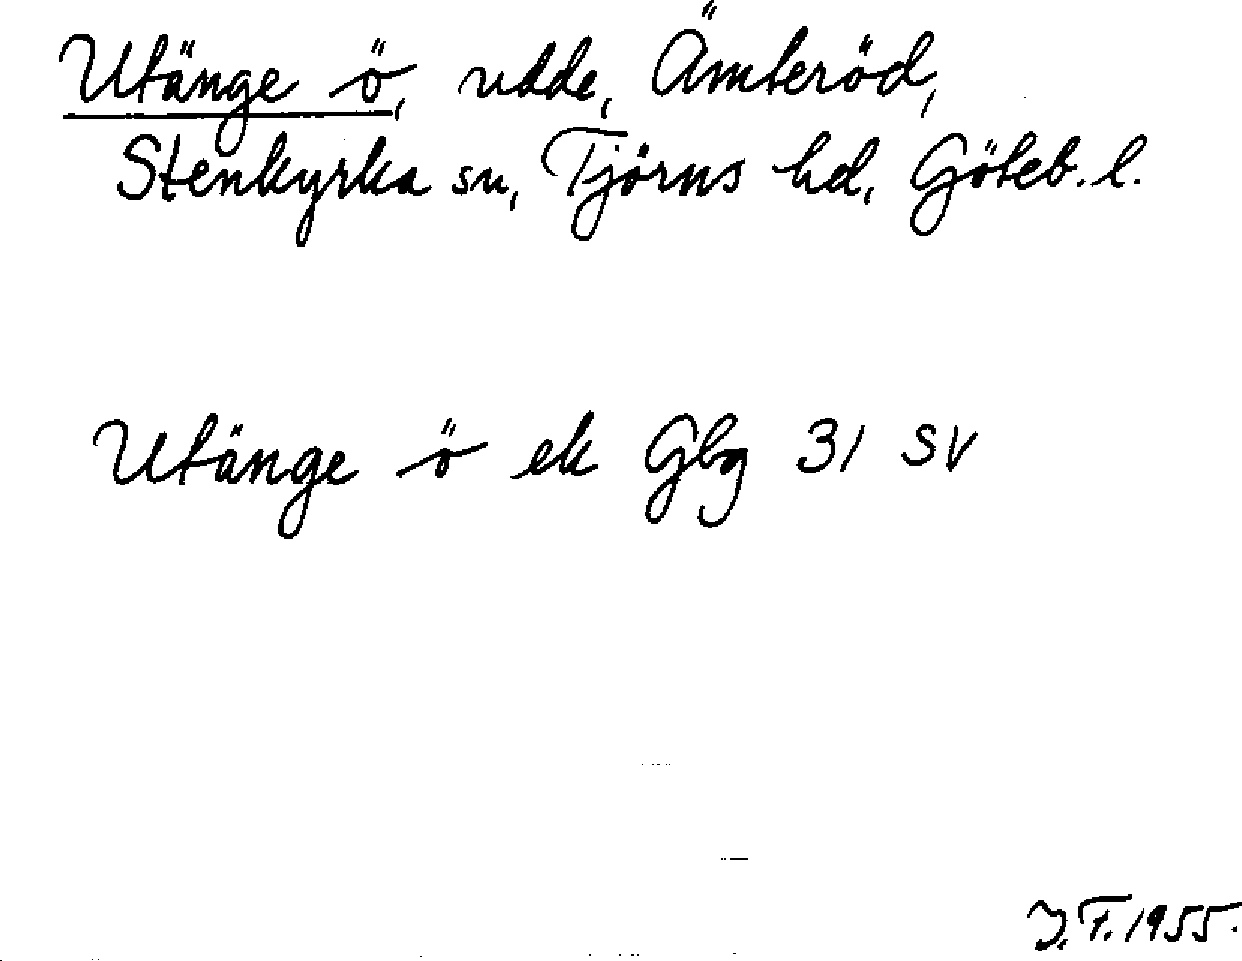 Utänge ö, udde, Ämteröd,
Stenkyrka sn, Tjörns hd, Göteb. l.
Utänge ö ek Gbg 31 SV
J.F. 1955.